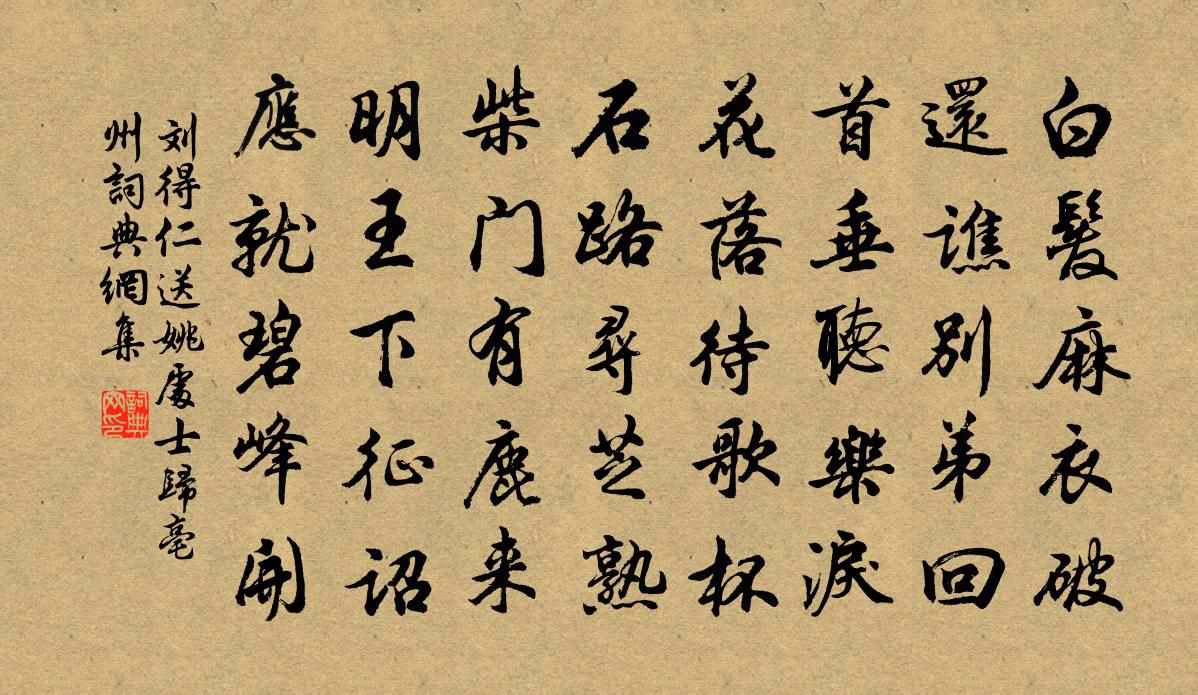 白髮麻衣破
還譙别弟回
首垂聽樂淚
花落待歌杯
石路尋芝熟
柴门有鹿来
明王下征詔
應就碧峰開
刘得仁送姚處士歸亳
州詞典網集
詞典网印